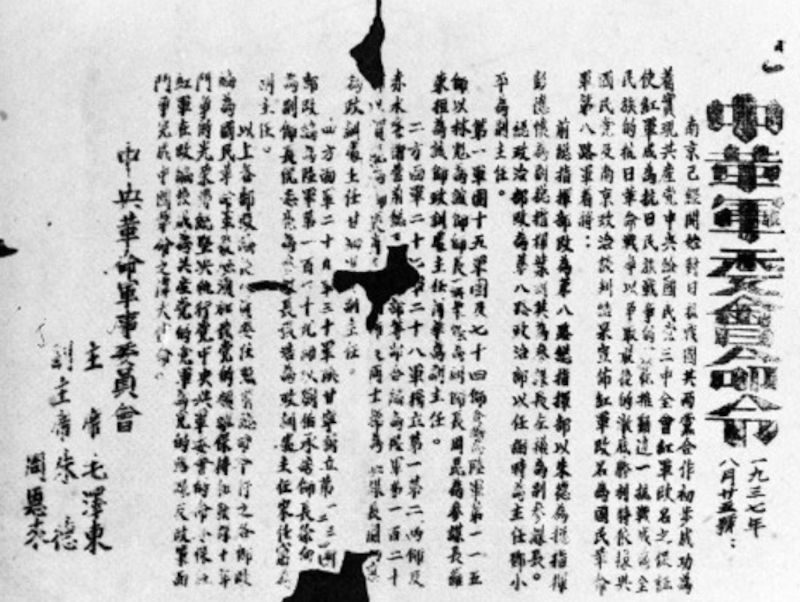 中革軍委會命令
一九三七年
八月廿五號：
南京已經開始對日抗戰國共兩黨合作初步成功為
着實現共產黨中央給國民黨三中全會紅軍改名之保証
使紅軍成為抗日民族戰爭的模範推動這一抗戰成為全
民族的抗日革命戰爭以爭取最後的澈底勝利特依據與
國民黨及南京政治談判結果宣佈紅軍改名為國民革命
軍第八路軍着將：
前總指揮部改為第八路總指揮部以朱德為總指揮
彭德懷為副總指揮葉劍英為參謀長左權為副參謀長。
總政治部改為第八路政治部以任弼時為主任鄧小
平為副主任。
第一軍團十五軍團及七十四師合編為陸軍第一一五
師以林彪為該師師長聶榮臻為副師長周昆為參謀長羅
榮桓為該師政訓處主任蕭華為副主任。
二方面軍二十七軍二十八軍獨立第一第二兩師及
赤水警衛營前總 部等部合編為陸軍第一百二十
師以賀 為師長 周士第為參謀長關向應
為政訓處主任甘泗 副主任。
四方面軍二十九軍三十軍陝甘寧獨立第一二三四團
等部改編為陸軍第一百二十九師以劉伯承為師長徐向前
為副師長倪志亮為參謀長張浩為政訓處主任宋任窮為
副主任。
以上各部改編後人員委任照前總命令行之各部改
編為國民革命軍後必須加強黨的領導保持和發揚十年
鬥爭的光榮傳統堅決執行黨中央與軍委會的命令保証
紅軍在改編後成為共產黨的黨軍為黨的路線及政策而
鬥爭完成中國革命之偉大使命。
中央革命軍事委員會
主席 毛澤東
副主席 朱德
周恩來